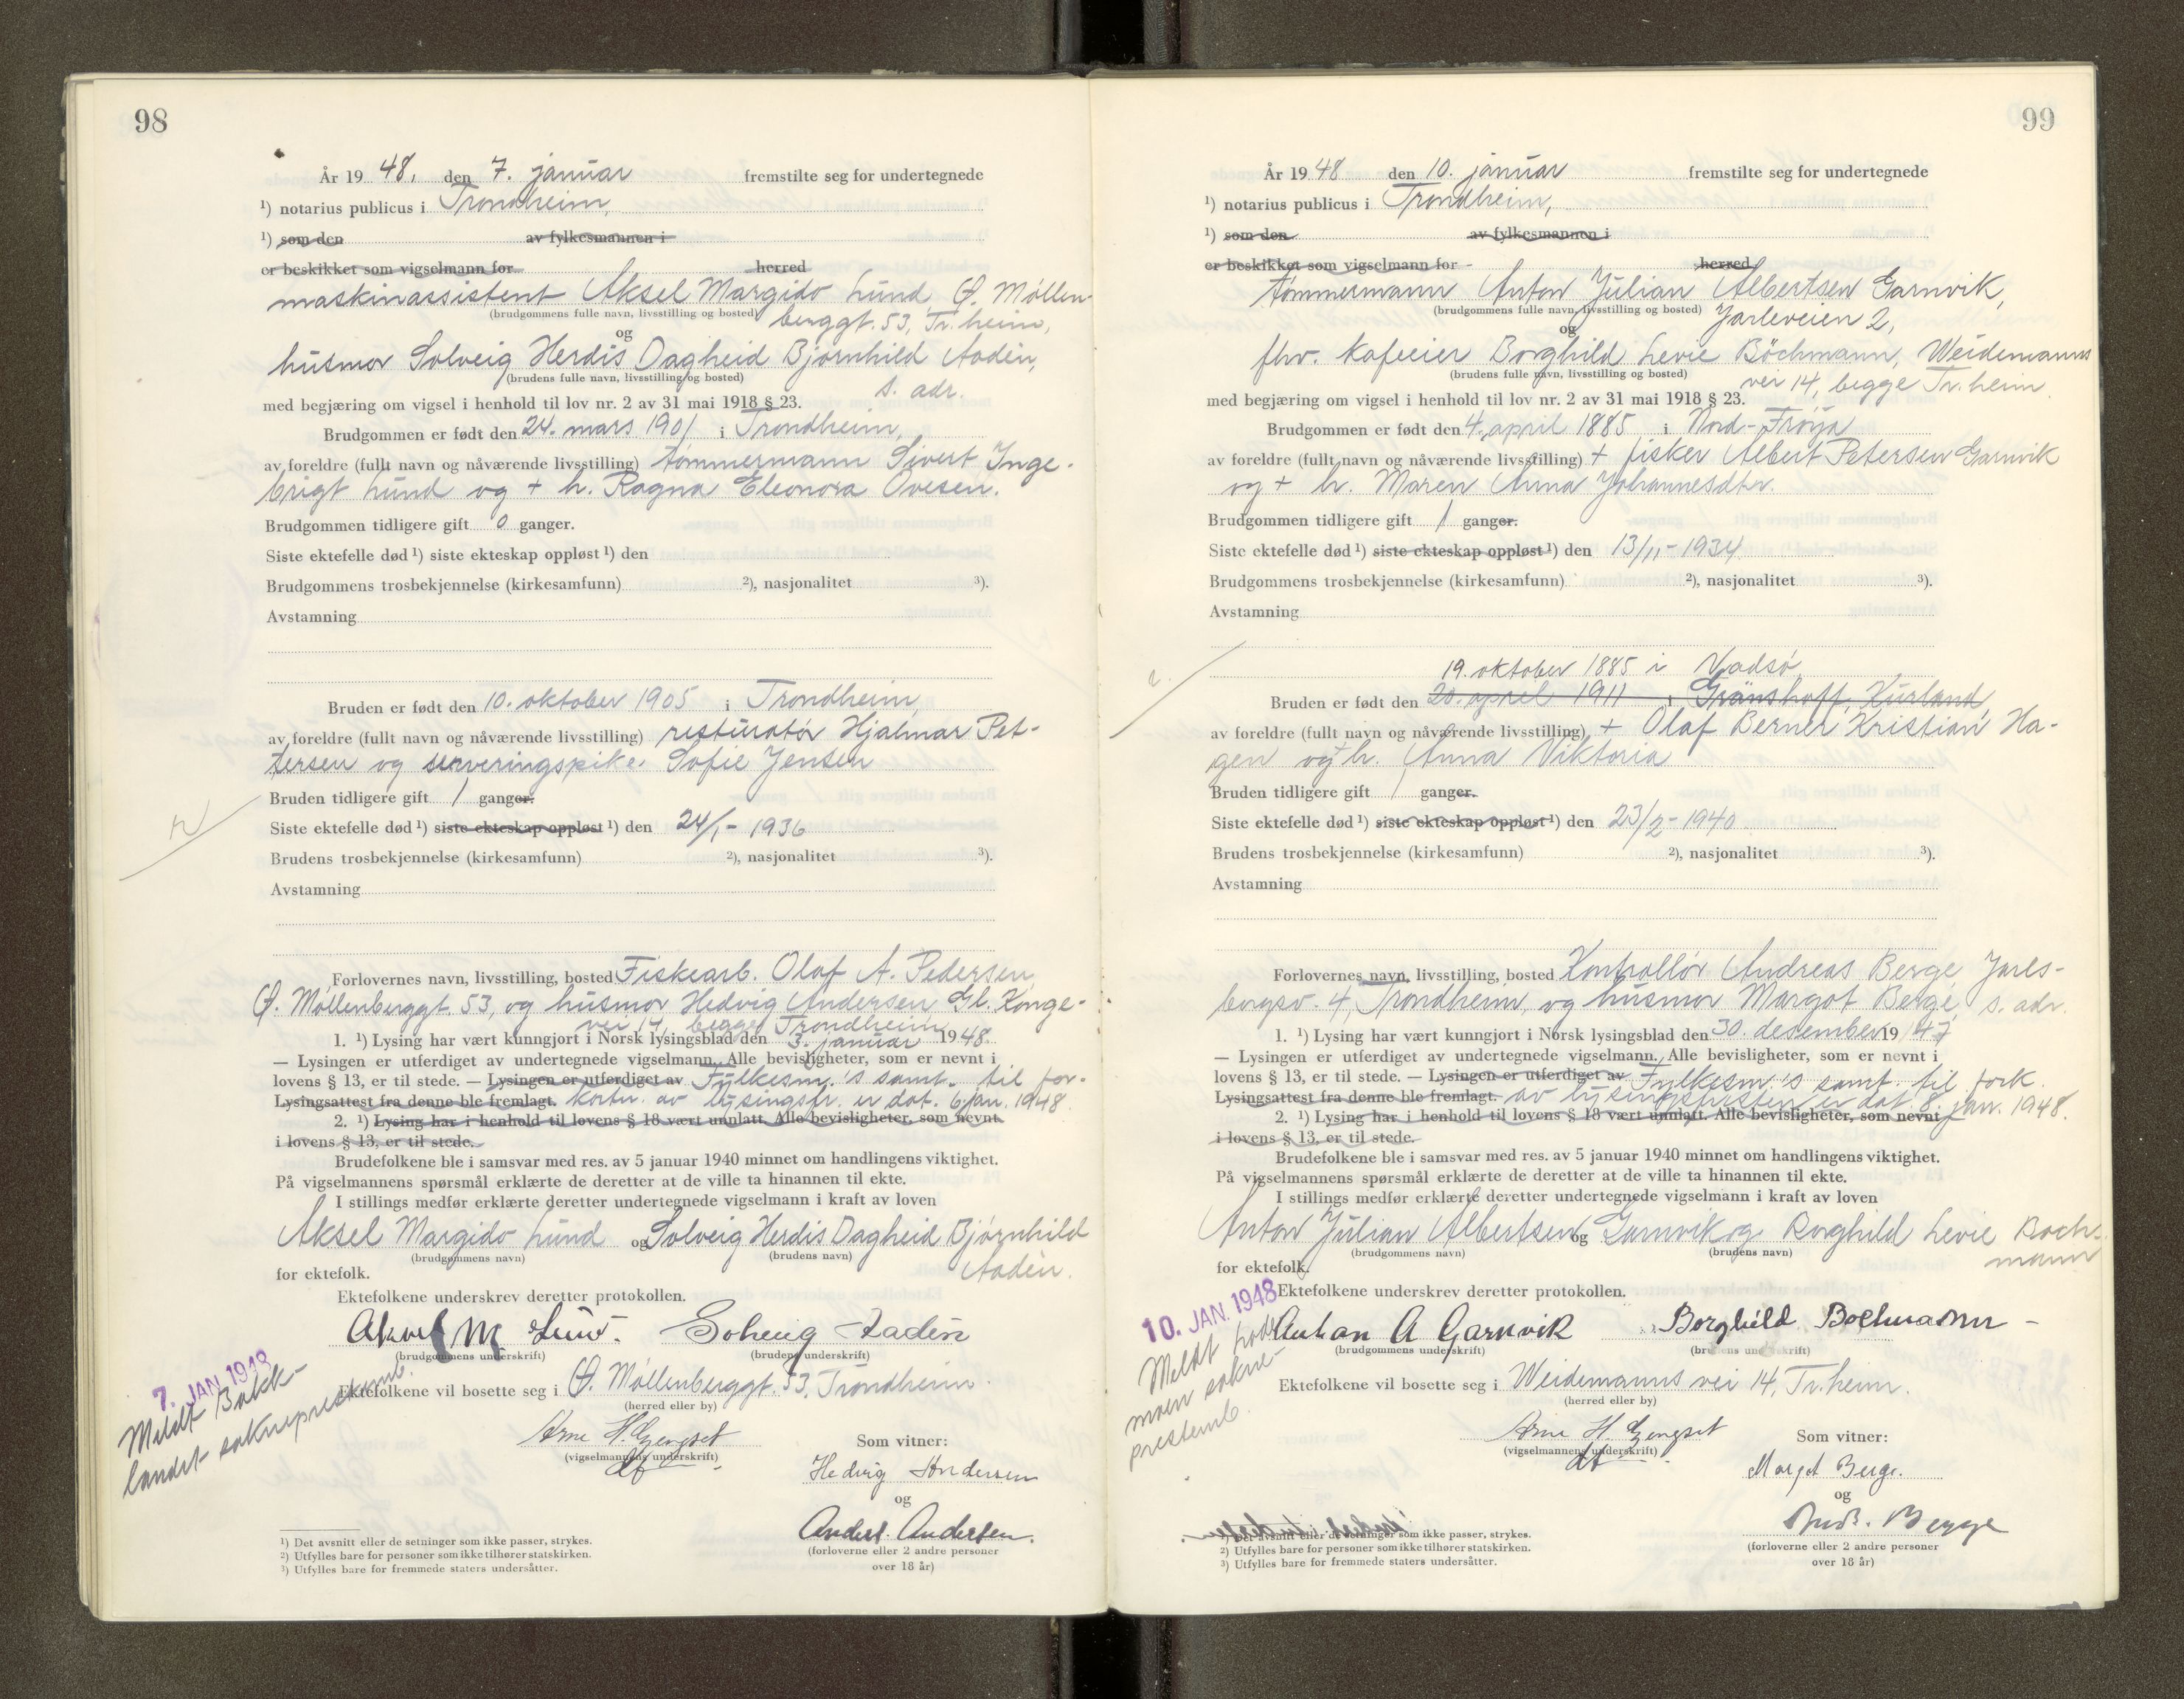 98
År 19 48, den 7. januar fremstilte seg for undertegnede
¹) notarius publicus i Trondheim,
¹) som den av fylkesmannen i
er beskikket som vigselmann for herred
maskinassistent Aksel Margido Lund, Ø. Møllen-
(brudgommens fulle navn, livsstilling og bosted) berggt. 53, Tr.heim,
og
husmor Solveig Herdis Dagheid Bjørnhild Aadén,
(brudens fulle navn, livsstilling og bosted) s. adr.
med begjæring om vigsel i henhold til lov nr. 2 av 31 mai 1918 § 23.
Brudgommen er født den 24. mars 1901 i Trondheim,
av foreldre (fullt navn og nåværende livsstilling) tømmermann Sivert Inge-
brigt Lund og + h. Ragna Eleonora Ovesen.
Brudgommen tidligere gift 0 ganger.
Siste ektefelle død ¹) siste ekteskap oppløst ¹) den
Brudgommens trosbekjennelse (kirkesamfunn) ²), nasjonalitet ³).
Avstamning
Bruden er født den 10. oktober 1905 i Trondheim,
av foreldre (fullt navn og nåværende livsstilling) resturatør Hjalmar Pet-
tersen og serveringspike Sofie Jensen
Bruden tidligere gift 1 ganger.
Siste ektefelle død ¹) siste ekteskap oppløst ¹) den 24/1- 1936
Brudens trosbekjennelse (kirkesamfunn) ²), nasjonalitet ³).
Avstamning
Forlovernes navn, livsstilling, bosted Fiskearb. Olaf A. Pedersen,
Ø. Møllenberggt. 53, og husmor Hedvig Andersen Gl. Konge-
vei 14, begge Trondheim
1. ¹) Lysing har vært kunngjort i Norsk lysingsblad den 3. januar 1948.
— Lysingen er utferdiget av undertegnede vigselmann. Alle bevisligheter, som er nevnt i
lovens § 13, er til stede. — Lysingen er utferdiget av Fylkesm.'s samt. til for-
Lysingsattest fra denne ble fremlagt. kortn. av lysingsfr. er dat. 6 jan. 1948.
2. ¹) Lysing har i henhold til lovens § 18 vært unnlatt. Alle bevisligheter, som nevnt
i lovens § 13, er til stede.
Brudefolkene ble i samsvar med res. av 5 januar 1940 minnet om handlingens viktighet.
På vigselmannens spørsmål erklærte de deretter at de ville ta hinannen til ekte.
I stillings medfør erklærte deretter undertegnede vigselmann i kraft av loven
Aksel Margido Lund og Solveig Herdis Dagheid Bjørnhild
(brudgommens navn) (brudens navn) Aadén.
for ektefolk.
Ektefolkene underskrev deretter protokollen.
Aksel M Lund. Solveig Aadén
(brudgommens underskrift) (brudens underskrift)
7. JAN. 1948
Meldt Bakk-
landet sokneprestemb.
Ektefolkene vil bosette seg i Ø. Møllenberggt. 53, Trondheim.
(herred eller by)
Arne H. Gengset
(vigselmannens underskrift)
df
Som vitner:
Hedvig Andersen
og
Anders. Andersen.
(forloverne eller 2 andre personer
over 18 år)
¹) Det avsnitt eller de setninger som ikke passer, strykes.
²) Utfylles bare for personer som ikke tilhører statskirken.
³) Utfylles bare for fremmede staters undersåtter.
99
År 19 48 den 10. januar fremstilte seg for undertegnede
¹) notarius publicus i Trondheim,
¹) som den av fylkesmannen i
er beskikket som vigselmann for herred
tømmermann Anton Julian Albertsen Garnvik,
(brudgommens fulle navn, livsstilling og bosted) Jarleveien 2,
og
fhv. kafeeier Borghild Levie Böchmann, Weidemanns
(brudens fulle navn, livsstilling og bosted) vei 14, begge Tr.heim.
med begjæring om vigsel i henhold til lov nr. 2 av 31 mai 1918 § 23.
Brudgommen er født den 4. april 1885 i Nord-Frøya
av foreldre (fullt navn og nåværende livsstilling) + fisker Albert Petersen Garnvik
og + h. Maren Anna Johannesdtr.
Brudgommen tidligere gift 1 ganger.
Siste ektefelle død ¹) siste ekteskap oppløst ¹) den 13/11- 1934
Brudgommens trosbekjennelse (kirkesamfunn) ²), nasjonalitet ³).
Avstamning
19. oktober 1885 i Vadsø
Bruden er født den 20. april 1911 i Gränshoff, Kurland,
av foreldre (fullt navn og nåværende livsstilling) + Olaf Berner Kristian Ha-
gen og + h. Anna Viktoria
Bruden tidligere gift 1 ganger.
Siste ektefelle død ¹) siste ekteskap oppløst ¹) den 23/2- 1940
Brudens trosbekjennelse (kirkesamfunn) ²), nasjonalitet ³).
Avstamning
Forlovernes navn, livsstilling, bosted Kontrollør Andreas Berge Jarls-
borgsv. 4, Trondheim, og husmor Margot Berge, s. adr.
1. ¹) Lysing har vært kunngjort i Norsk lysingsblad den 30. desember 19 47
— Lysingen er utferdiget av undertegnede vigselmann. Alle bevisligheter, som er nevnt i
lovens § 13, er til stede. — Lysingen er utferdiget av Fylkesm.'s samt. til fork.
Lysingsattest fra denne ble fremlagt. av lysingsfristen er dat. 8. jan. 1948.
2. ¹) Lysing har i henhold til lovens § 18 vært unnlatt. Alle bevisligheter, som nevnt
i lovens § 13, er til stede.
Brudefolkene ble i samsvar med res. av 5 januar 1940 minnet om handlingens viktighet.
På vigselmannens spørsmål erklærte de deretter at de ville ta hinannen til ekte.
I stillings medfør erklærte deretter undertegnede vigselmann i kraft av loven
Anton Julian Albertsen og Garnvik og Borghild Levie Böch-
(brudgommens navn) (brudens navn) mann
for ektefolk.
10. JAN. 1948
Ektefolkene underskrev deretter protokollen.
Anton A Garnvik Borghild Bochmann
(brudgommens underskrift) (brudens underskrift)
Meldt
moen sokne-
prestemb.
Ektefolkene vil bosette seg i Weidemanns vei 14, Tr.heim.
(herred eller by)
Arne H. Gengset
(vigselmannens underskrift)
df
Som vitner:
Margot Berge.
og
Andr. Berge
(forloverne eller 2 andre personer
over 18 år)
¹) Det avsnitt eller de setninger som ikke passer, strykes.
²) Utfylles bare for personer som ikke tilhører statskirken.
³) Utfylles bare for fremmede staters undersåtter.